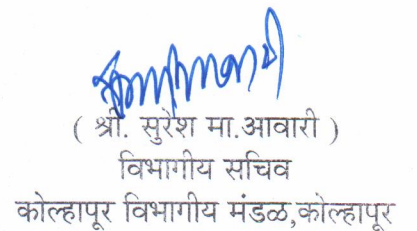 ( श्री. सुरेश मा.आवारी )
विभागीय सचिव
कोल्हापूर विभागीय मंडळ,कोल्हापूर